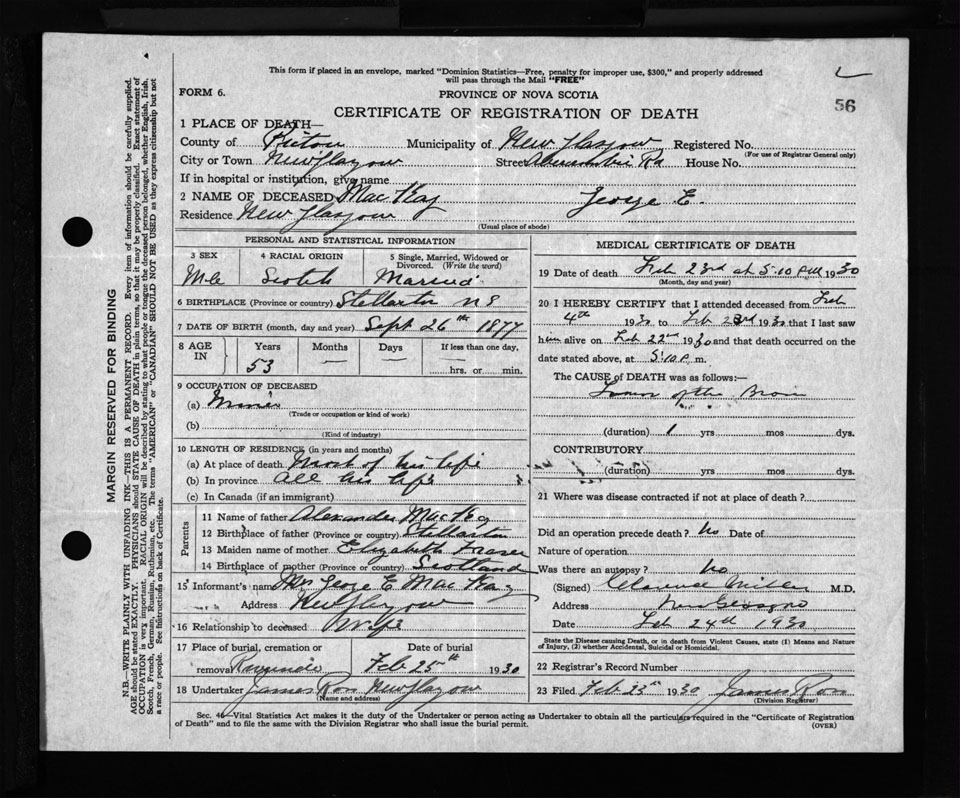 This form if placed in an envelope, marked "Dominion Statistics—Free, penalty for improper use, $300," and properly addressed
will pass through the Mail "FREE"
FORM 6.
PROVINCE OF NOVA SCOTIA
56
CERTIFICATE OF REGISTRATION OF DEATH
1 PLACE OF DEATH—
County of Pictou Municipality of New Glasgow Registered No.
(For use of Registrar General only)
City or Town New Glasgow Street Abercrombie Rd House No.
If in hospital or institution, give name
2 NAME OF DECEASED MacKay George E.
Residence New Glasgow
(Usual place of abode)
PERSONAL AND STATISTICAL INFORMATION
3 SEX 4 RACIAL ORIGIN 5 Single, Married, Widowed or
Divorced. (Write the word)
Mle Scotch Married
6 BIRTHPLACE (Province or country) Stellarton N S
7 DATE OF BIRTH (month, day and year) Sept 26th 1877
8 AGE IN Years Months Days If less than one day,
53 — — hrs. or min.
9 OCCUPATION OF DECEASED
(a) Miner
(Trade or occupation or kind of work)
(b)
(Kind of industry)
10 LENGTH OF RESIDENCE (in years and months)
(a) At place of death Most of his life
(b) In province all his life
(c) In Canada (if an immigrant)
Parents
11 Name of father Alexander MacKay
12 Birthplace of father (Province or country) Stellarton
13 Maiden name of mother Elizabeth Fraser
14 Birthplace of mother (Province or country) Scotland
15 Informant's name Mrs George E MacKay
Address New Glasgow
16 Relationship to deceased Wife
17 Place of burial, cremation or Date of burial
removal Riverside Feb 25th 1930
18 Undertaker James Ross New Glasgow
(Name and address)
MEDICAL CERTIFICATE OF DEATH
19 Date of death Feb 23rd at 5.10 PM 1930
(Month, day and year)
20 I HEREBY CERTIFY that I attended deceased from Feb
4th 1930 to Feb 23rd 1930 that I last saw
him alive on Feb 22nd 1930 and that death occurred on the
date stated above, at 5.10 P. m.
The CAUSE of DEATH was as follows:—
of the Brain
(duration) 1 yrs mos dys.
CONTRIBUTORY
(duration) yrs mos dys.
21 Where was disease contracted if not at place of death?
Did an operation precede death? No Date of
Nature of operation
Was there an autopsy? No
(Signed) Clarence Miller M.D.
Address New Glasgow
Date Feb 24th 1930
State the Disease causing Death, or in death from Violent Causes, state (1) Means and Nature
of Injury, (2) whether Accidental, Suicidal or Homicidal.
22 Registrar's Record Number
23 Filed Feb 25th 1930 James Ross
(Division Registrar)
Sec. 46—Vital Statistics Act makes it the duty of the Undertaker or person acting as Undertaker to obtain all the particulars required in the "Certificate of Registration
of Death" and to file the same with the Division Registrar who shall issue the burial permit. (OVER)
MARGIN RESERVED FOR BINDING
N.B.—WRITE PLAINLY WITH UNFADING INK—THIS IS A PERMANENT RECORD. Every item of information should be carefully supplied.
AGE should be stated EXACTLY. PHYSICIANS should STATE CAUSE OF DEATH in plain terms, so that it may be properly classified. Exact statement of
OCCUPATION is very important. RACIAL ORIGIN will be described by stating to what people or tongue the deceased person belonged, whether English, Irish,
Scotch, French, German, Russian, Ruthenian, etc. The terms "AMERICAN" or "CANADIAN" SHOULD NOT BE USED as they express citizenship but not
a race or people. See instructions on back of Certificate.